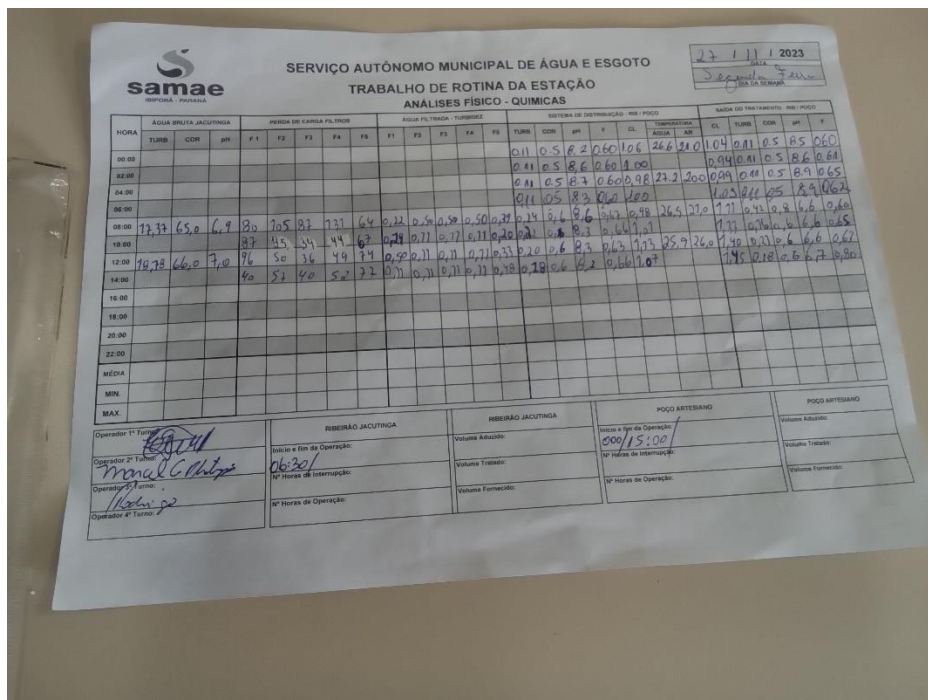 samae
IBIPORÃ - PARANÁ
SERVIÇO AUTÔNOMO MUNICIPAL DE ÁGUA E ESGOTO
TRABALHO DE ROTINA DA ESTAÇÃO
ANÁLISES FÍSICO - QUIMICAS
27 / 11 / 2023
DATA
Segunda Feira
DIA DA SEMANA
HORA ÁGUA BRUTA JACUTINGA PERDA DE CARGA FILTROS ÁGUA FILTRADA - TURBIDEZ SISTEMA DE DISTRIBUIÇÃO - RIB / POÇO SAÍDA DO TRATAMENTO - RIB / POÇO
TURB COR pH F 1 F2 F3 F4 F5 F1 F2 F3 F4 F5 TURB COR pH F CL TEMPERATURA ÁGUA AR CL TURB COR pH F
00:00 0,11 0.5 8,2 0,60 1,06 26,6 21,0 1,04 0,11 0.5 8,5 0,60
02:00 0,11 0.5 8,6 0,60 1,00 0,94 0,11 0.5 8,6 0,61
04:00 0,11 0.5 8.7 0,60 0,98 27.2 20,0 0,99 0,11 0.5 8.9 0,65
06:00 0,11 0.5 8.3 0,60 1,00 1,03 0,11 0.5 8,9 0,62
08:00 17,37 65,0 6,9 80 105 87 64 0,22 0,50 0,50 0,50 0,39 0,24 0,6 8,6 0,67 0,98 26,5 27,0 0,42 0,8 6,6 0,60
10:00 87 45 34 44 67 0,20 8,3 0,66 1,01 6,6 0,65
12:00 66,0 7,0 96 50 36 49 74 0,33 0,20 0,6 8,3 0,63 1,13 25,9 26,0 1,40 0,6 6,6 0,67
14:00 40 57 40 50 77 0,18 0,6 8,2 0,66 1,07 1,45 0,18 0,6 6,7 0,80
16:00
18:00
20:00
22:00
MÉDIA
MIN.
MAX.
Operador 1º Turno:
Operador 2º Turno:
Marcel
Operador 3º Turno:
Rodrigo
Operador 4º Turno:
RIBEIRÃO JACUTINGA
Início e fim da Operação:
06:30/
Nº Horas de Interrupção:
Nº Horas de Operação:
RIBEIRÃO JACUTINGA
Volume Aduzido:
Volume Tratado:
Volume Fornecido:
POÇO ARTESIANO
Início e fim da Operação:
000/15:00/
Nº Horas de Interrupção:
Nº Horas de Operação:
POÇO ARTESIANO
Volume Aduzido:
Volume Tratado:
Volume Fornecido: